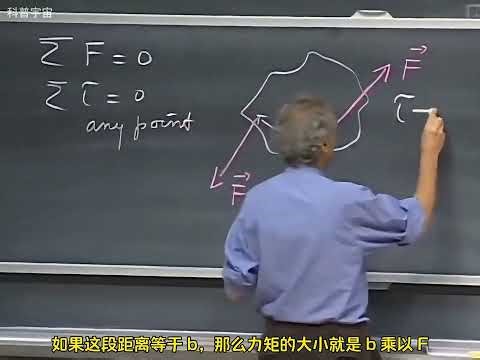 科普宇宙
Σ F = 0
Σ τ = 0
any point
F⃗
F⃗
τ
如果这段距离等于 b，那么力矩的大小就是 b 乘以 F